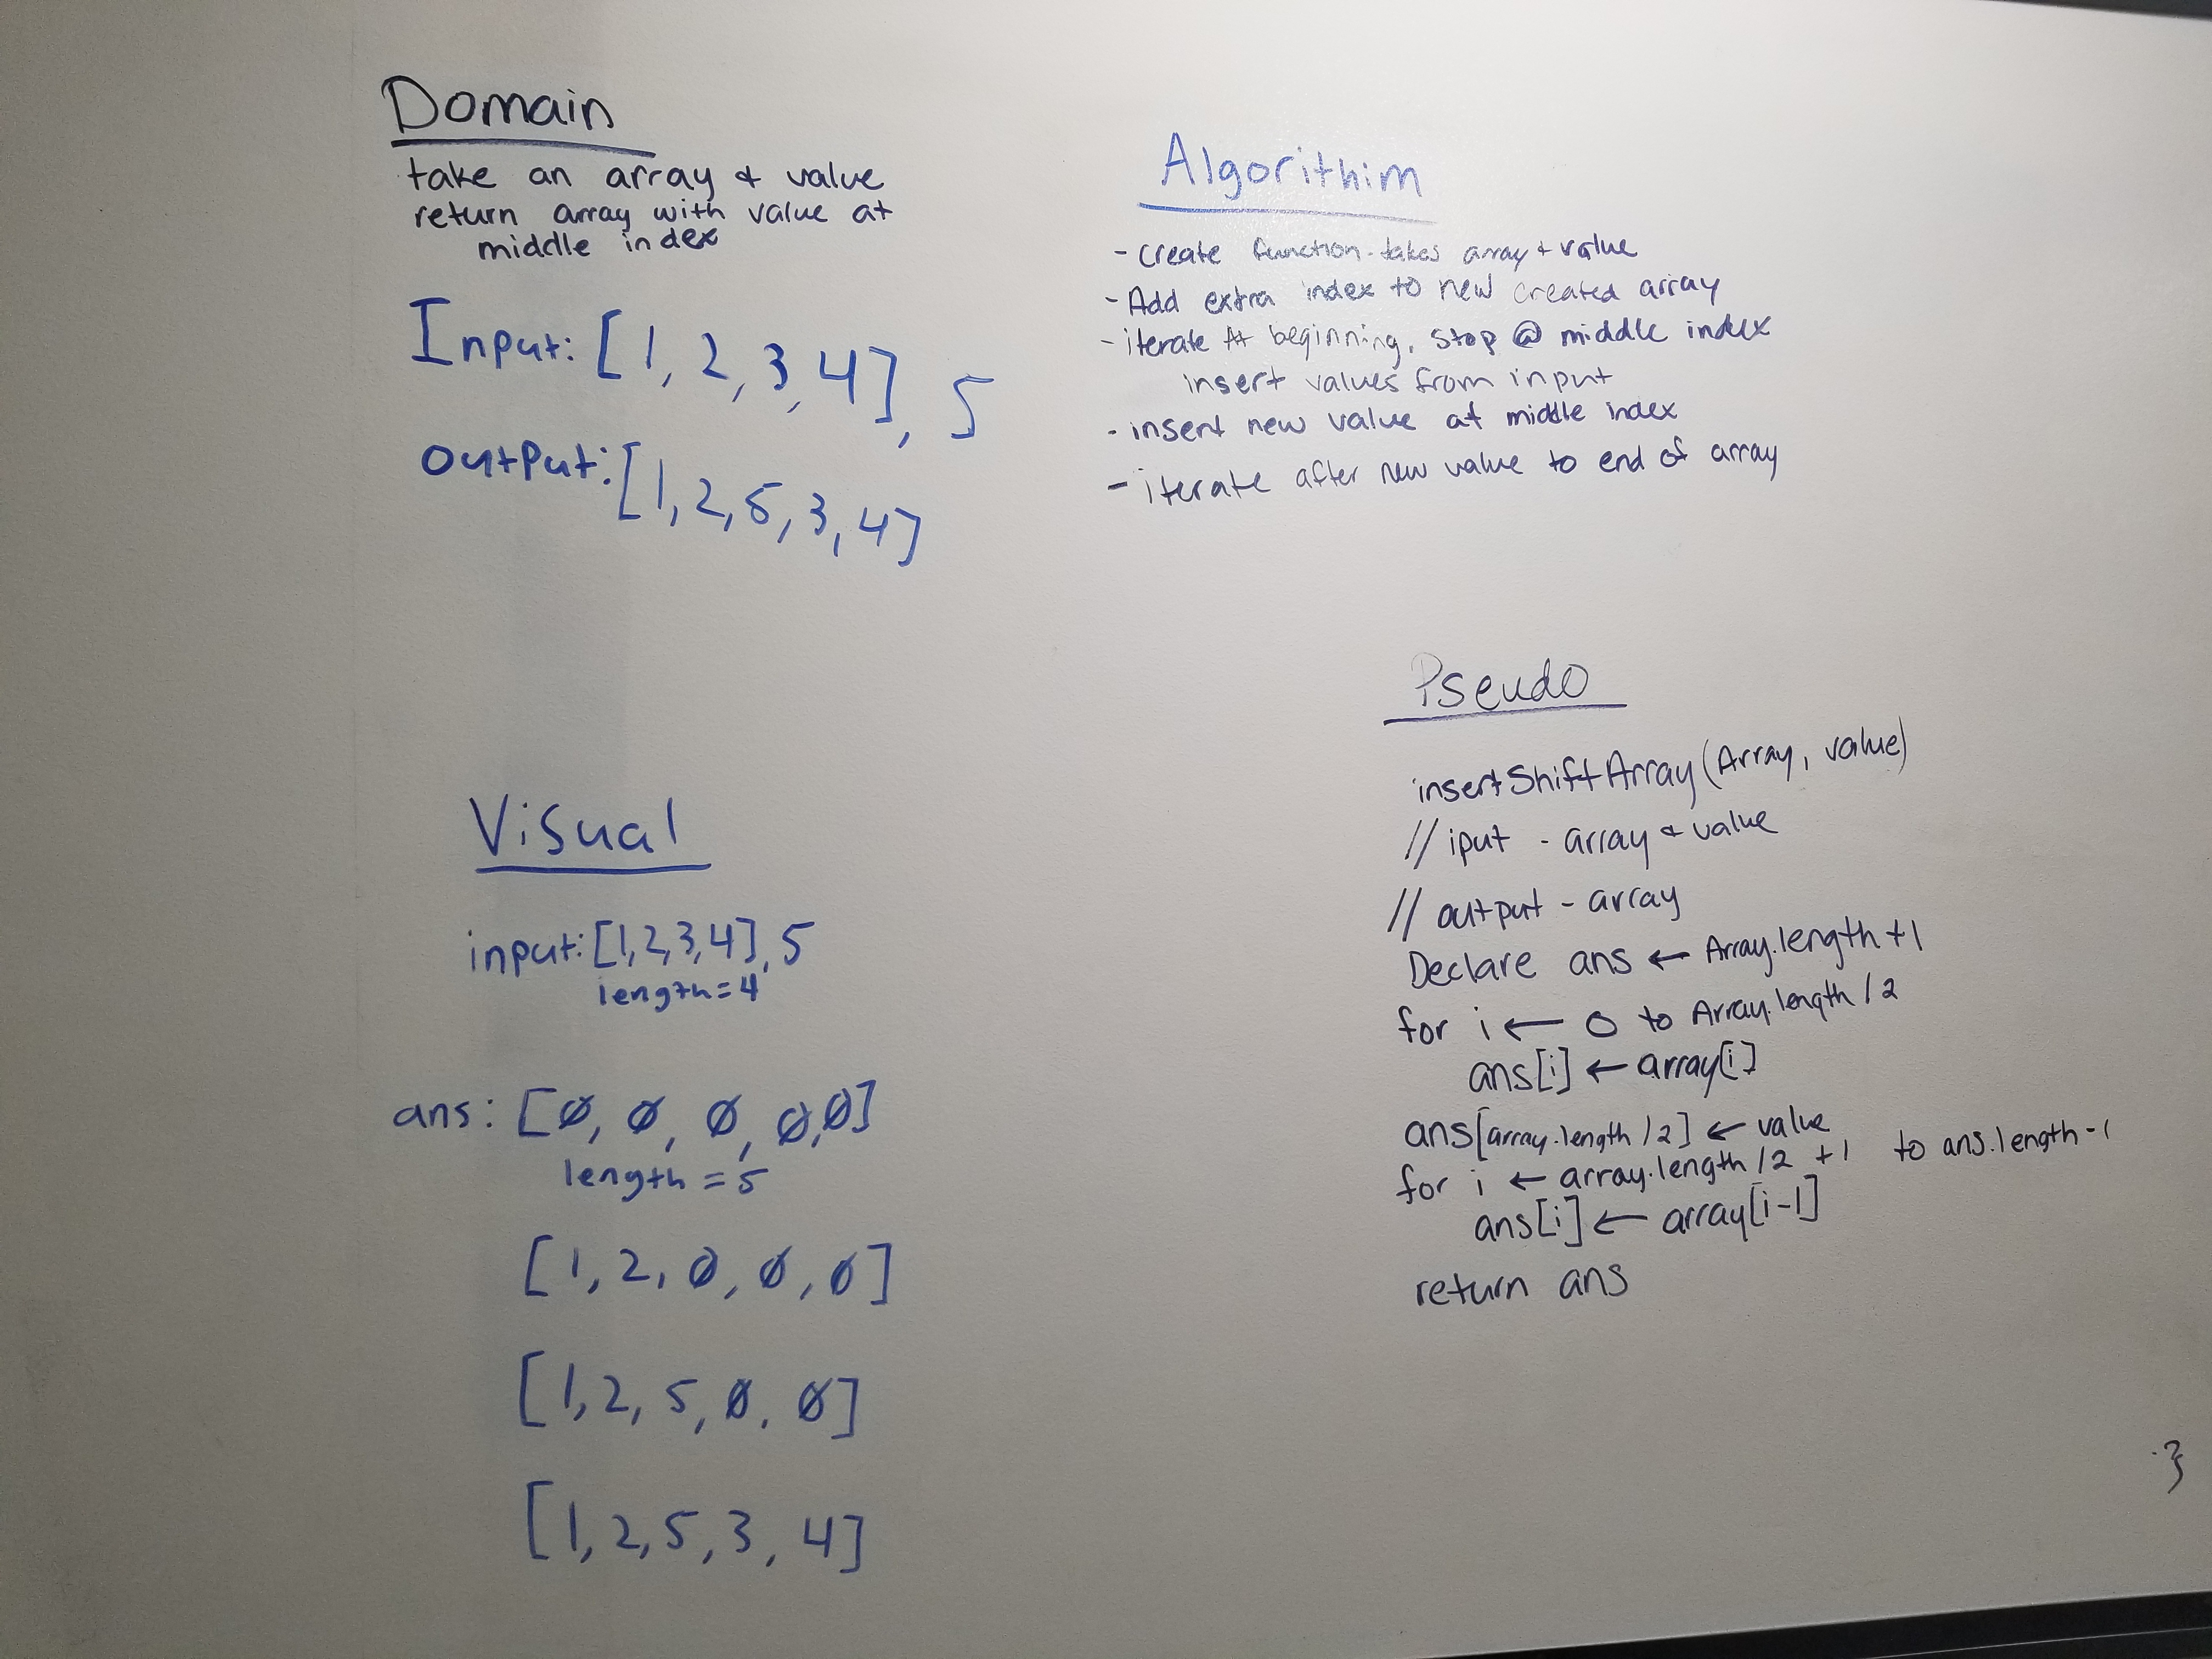 Domain
take an array & value
return array with value at
middle index
Input: [1, 2, 3, 4], 5
output: [1, 2, 5, 3, 4]
Algorithim
- create function takes array + value
- Add extra index to new created array
- iterate At beginning, stop @ middle index
insert values from input
- insert new value at middle index
- iterate after new value to end of array
Visual
input: [1, 2, 3, 4], 5
length = 4
ans: [0, 0, 0, 0, 0]
length = 5
[1, 2, 0, 0, 0]
[1, 2, 5, 0, 0]
[1, 2, 5, 3, 4]
Pseudo
insertShiftArray(Array, value)
// iput - array & value
// output - array
Declare ans ← Array.length + 1
for i ← 0 to Array.length / 2
ans[i] ← array[i]
ans[array.length / 2] ← value
for i ← array.length / 2 + 1 to ans.length - 1
ans[i] ← array[i-1]
return ans